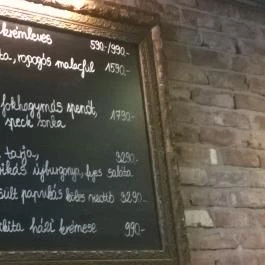 krémleves 590-/990.-
ta, ropogós malacfül 1590.-
fokhagymás spenót,
speck sonka 1790.-
tarja, 3290.-
rikás újburgonya, lyes saláta
sült paprikás 3290.-
kita házi krémese 990.-